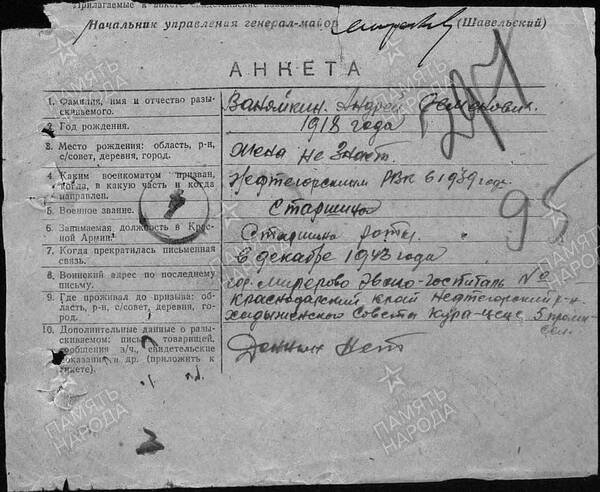 Прилагаемые к анкете свидетельские показания
Начальник управления генерал-майор (Шавельский)
АНКЕТА
297
1. Фамилия, имя и отчество разыскиваемого. Ваняйкин Андрей Демянович.
2. Год рождения. 1918 года
3. Место рождения: область, р-н, с/совет, деревня, город. Жена не знает.
4. Каким военкоматом призван, когда, в какую часть и когда направлен. Нефтегорским РВК в 1939 году
5. Военное звание. Старшина
95
6. Занимаемая должность в Красной Армии. Старшина роты.
7. Когда прекратилась письменная связь. в декабре 1943 года
8. Воинский адрес по последнему письму. гор. Эвако-госпиталь №
9. Где проживал до призыва: область, р-н, с/совет, деревня, город. Краснодарский край Нефтегорский р-н
Хадыженского Совета Кура-цеце 5 промысел.
10. Дополнительные данные о разыскиваемом: письма товарищей, сообщения з/ч., свидетельские показания и др. (приложить к анкете). нет
ПАМЯТЬ НАРОДА